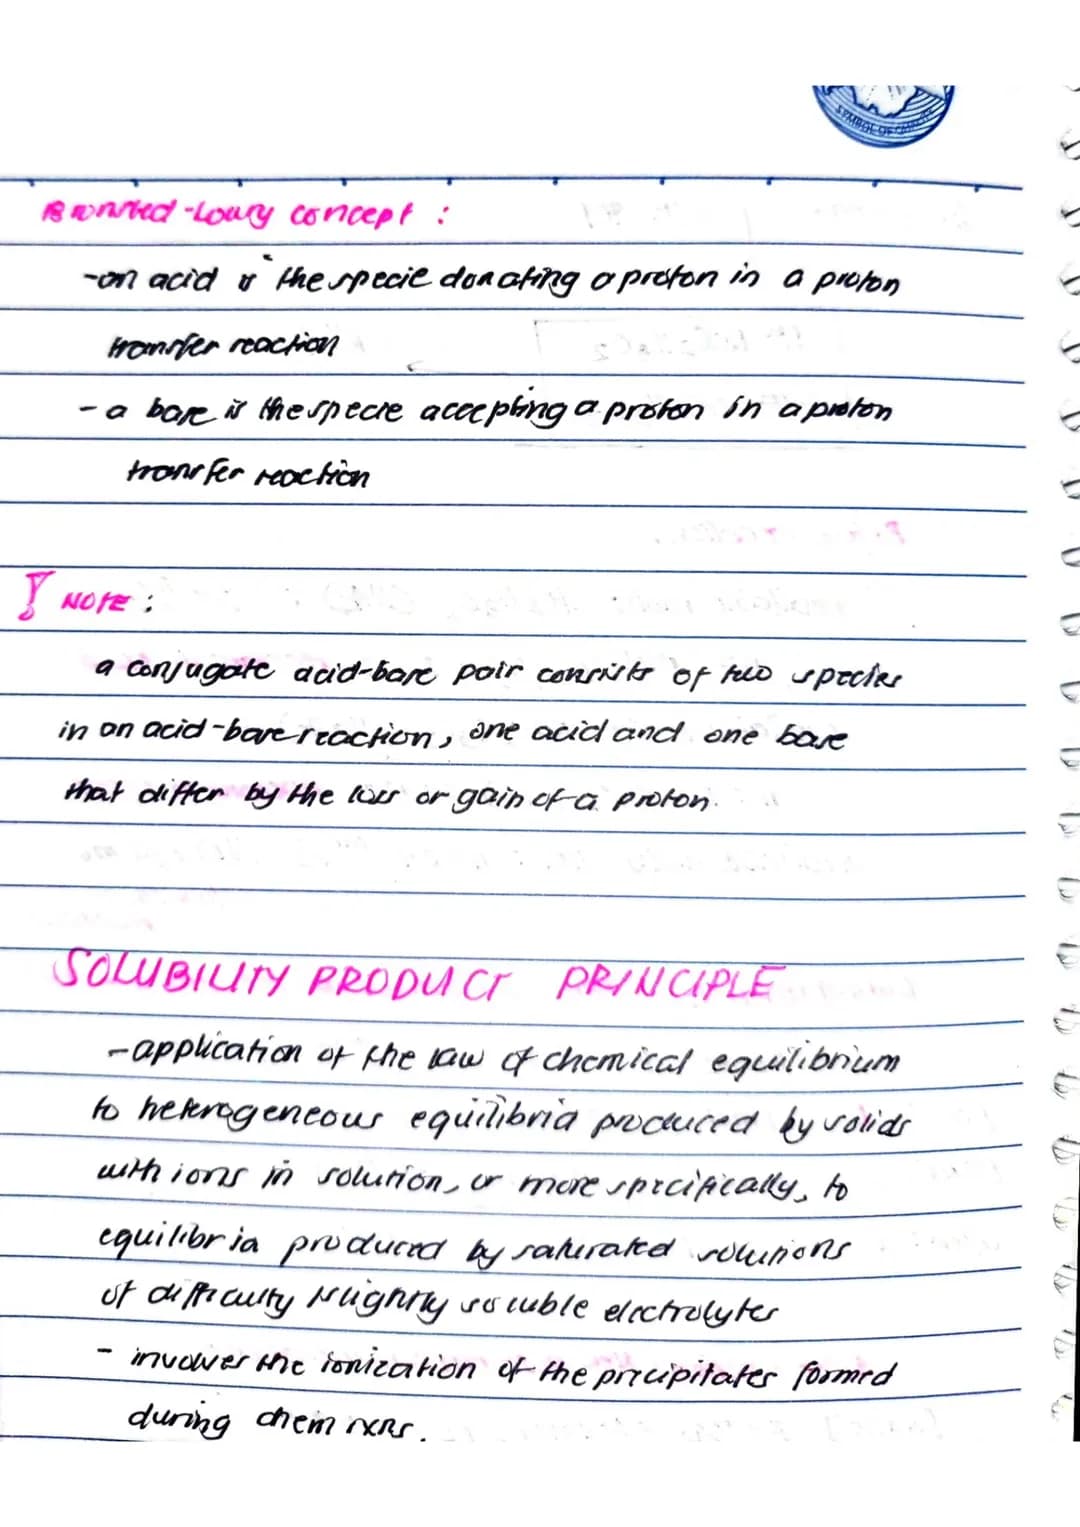 SYMBOL OF
Bronsted-Lowry concept :
-an acid is the specie donating a proton in a proton
transfer reaction
- a base is the specie accepting a proton in a proton
transfer reaction
NOTE :
a conjugate acid-base pair consists of two species
in an acid-base reaction, one acid and one base
that differ by the loss or gain of a proton.
SOLUBILITY PRODUCT PRINCIPLE
-application of the law of chemical equilibrium
to heterogeneous equilibria produced by solids
with ions in solution, or more specifically, to
equilibria produced by saturated solutions
of difficulty slightly soluble electrolytes
- involves the ionization of the precipitates formed
during chem rxns.